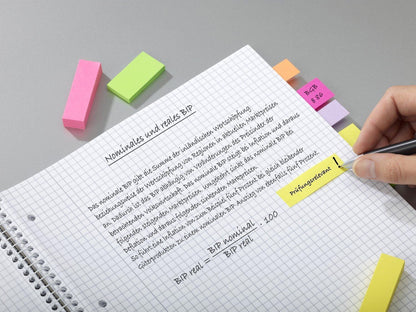 Nominales und reales BIP
Das nominale BIP gibt die Summe der inländischen Wertschöpfung
beziehungsweise der Wertschöpfung von Regionen in aktuellen Marktpreisen
an. Dadurch ist das BIP abhängig von Veränderungen des Preisindex der
betrachtenden Volkswirtschaft. Das nominale BIP steigt bei Inflation und daraus
folgenden steigenden Marktpreisen. Umgekehrt sinkt das nominale BIP bei
Deflation und daraus folgenden sinkenden Marktpreisen.
So führt eine Inflation von zum Beispiel fünf Prozent bei gleich bleibender
Güterproduktion zu einem nominalen BIP Anstieg von ebenfalls fünf Prozent.
BIP real = BIP nominal / BIP real · 100
BGB
§ 86
Prüfungsrelevant !